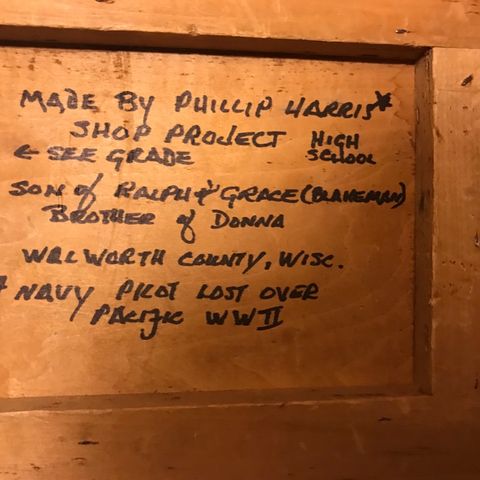 MADE BY PHILLIP HARRIS*
SHOP PROJECT HIGH SCHOOL
← SEE GRADE
SON of RALPH & GRACE (BLAKEMAN)
BROTHER of DONNA
WALWORTH COUNTY, WISC.
* NAVY PILOT LOST OVER
PACIFIC WWII